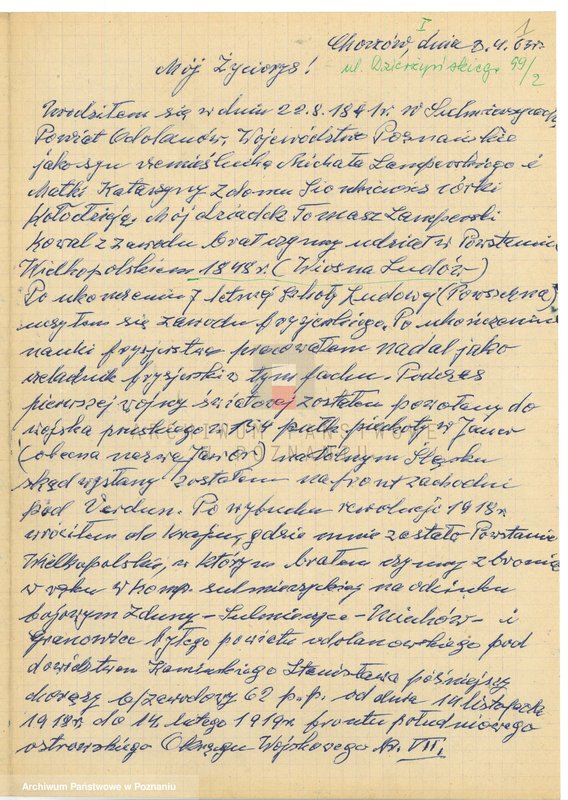 I 1
Chorzów, dnia 8.4.63r.
ul. Dzierżyńskiego 99/2
Mój Życiorys!
Urodziłem się w dniu 22.8.1891r. w Sulmierzycach,
Powiat Odolanów, Województwo Poznańskie
jako syn rzemieślnika Michała Lamperskiego i
Matki Katarzyny z domu córki
Kołodzieja, Mój dziadek Tomasz Lamperski
Kowal z zawodu brał czynny udział w Powstaniu
Wielkopolskiem 1848 r. (Wiosna Ludów)
Po ukończeniu 7 letniej Szkoły Ludowej (Powszechna)
uczyłem się zawodu fryzjerskiego. Po ukończeniu
nauki fryzjerstwa pracowałem nadal jako
czeladnik fryzjerski w tym fachu. Podczas
pierwszej wojny światowej zostałem powołany do
wojska pruskiego w 154 pułk piechoty w Jauer
(obecna nazwa Jawor) na Dolnym Śląsku
skąd wysłany zostałem na front zachodni
pod Verdun. Po wybuchu rewolucji 1918r.
wróciłem do kraju, gdzie mnie zastało Powstanie
Wielkopolskie, w którym brałem czynny z bronią
w ręku w komp. sulmierzyckiej na odcinku
bojowym Zduny - Sulmierzyce - - i
Granowiec byłego powiatu odolanowskiego pod
dowództwem Kamińskiego Stanisława późniejszy
chorąży b/zawodowy 62 p.p. od dnia 14 listopada
1918r. do 14 lutego 1919r. frontu południowego
ostrowskiego Okręgu Wojskowego Nr. VII.
ARCHIWUM PAŃSTWOWE
W POZNANIU
Archiwum Państwowe w Poznaniu